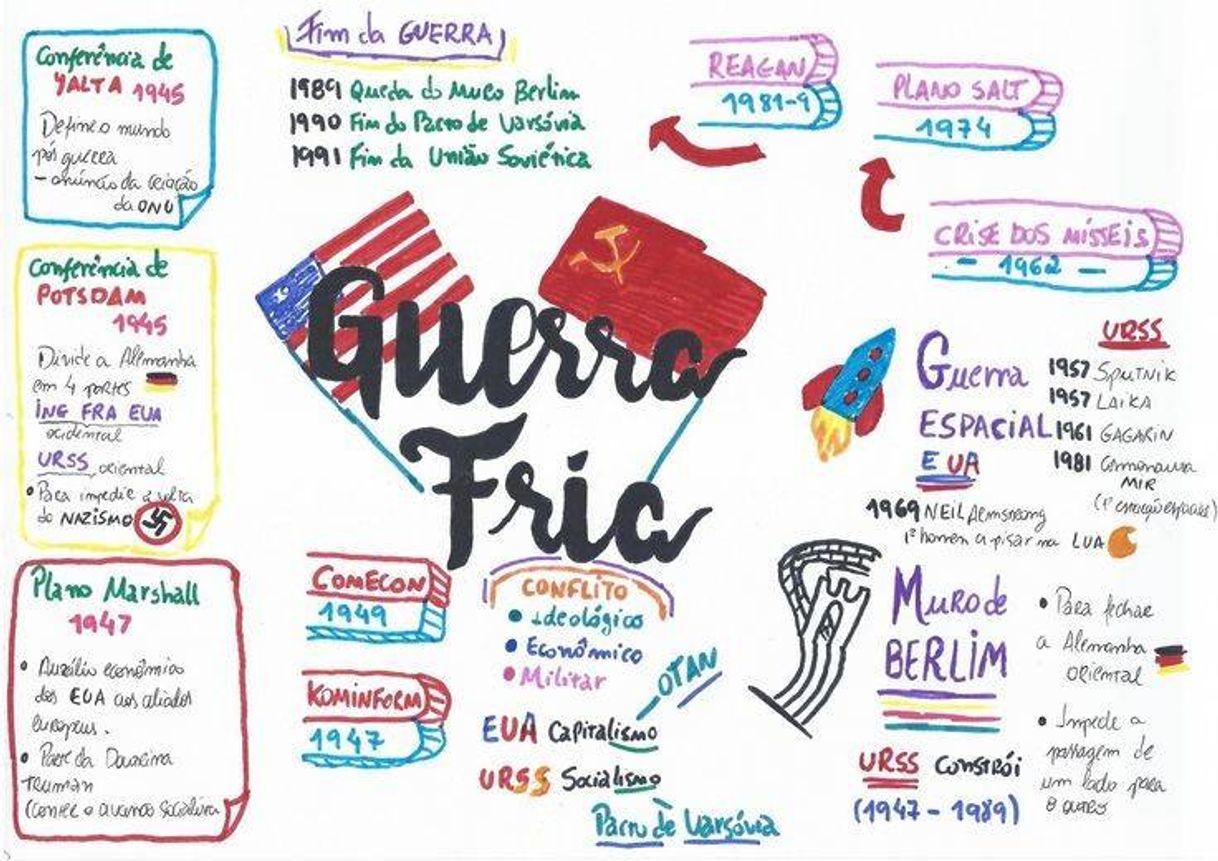 Conferência de
YALTA 1945
Define o mundo
pós guerra
- anúncio da criação
da ONU
Conferência de
POTSDAM
1945
Divide a Alemanha
em 4 partes
ING FRA EUA
ocidental
URSS oriental
• Para impedir a volta
do NAZISMO
Plano Marshall
1947
• Auxílio econômico
dos EUA aos aliados
europeus.
• Parte da Doutrina
TRUMAN
(conter o avanço socialista
Fim da GUERRA
1989 Queda do Muro Berlim
1990 Fim do Pacto de Varsóvia
1991 Fim da União Soviética
REAGAN
1981-9
PLANO SALT
1974
CRISE DOS MÍSSEIS
- 1962 -
Guerra
Fria
Guerra
ESPACIAL
URSS
1957 SPUTNIK
1957 LAIKA
1961 GAGARIN
1981 Cosmonauta
MIR
EUA
1969 NEIL Armstrong
1º homem a pisar na LUA
COMECON
1949
KOMINFORM
1947
CONFLITO
• Ideológico
• Econômico
• Militar
OTAN
EUA Capitalismo
URSS Socialismo
Pacto de Varsóvia
Muro de
BERLIM
URSS CONSTRÓI
(1947 - 1989)
• Para fechar
a Alemanha
oriental
• Impede a
passagem de
um lado para
o outro